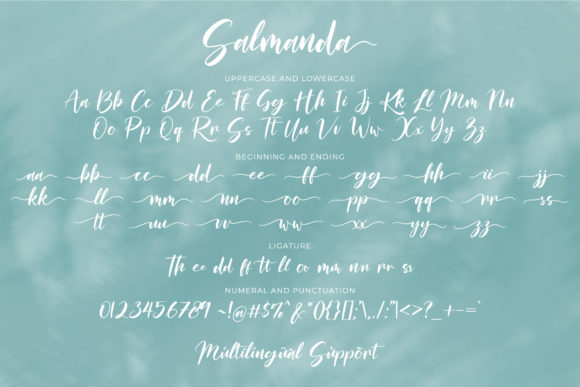 Salmanda
UPPERCASE AND LOWERCASE
Aa Bb Cc Dd Ee Ff Gg Hh Ii Jj Kk Ll Mm Nn
Oo Pp Qq Rr Ss Tt Uu Vv Ww Xx Yy Zz
BEGINNING AND ENDING
aa bb cc dd ee ff gg hh ii jj
kk ll mm nn oo pp qq rr ss
tt uu vv ww xx yy zz
LIGATURE
Th ee dd ff tt ll oo mm nn rr ss
NUMERAL AND PUNCTUATION
0123456789 ~!@#$%^&*(){}[]:"\,./;'|<>?_+-=`
Múltilingüäl Süppört